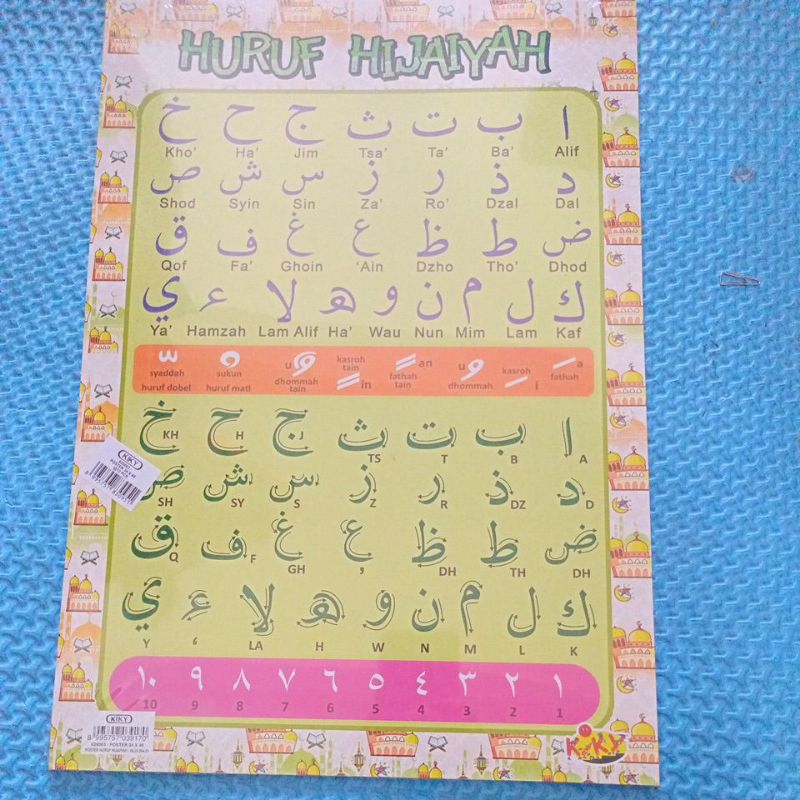 HURUF HIJAIYAH
ا ب ت ث ج ح خ
Kho' Ha' Jim Tsa' Ta' Ba' Alif
د ذ ر ز س ش ص
Shod Syin Sin Za' Ro' Dzal Dal
ض ط ظ ع غ ف ق
Qof Fa' Ghoin 'Ain Dzho Tho' Dhod
ك ل م ن و ه لا ء ي
Ya' Hamzah Lam Alif Ha' Wau Nun Mim Lam Kaf
syaddah huruf dobel
sukun huruf mati
u dhommah tain
kasroh tain in
an fathah tain
u dhommah
kasroh i
a fathah
ا ب ت ث ج ح خ
KH H J TS T B A
د ذ ر ز س ش ص
SH SY S Z R DZ D
ض ط ظ ع غ ف ق
Q F GH ' DH TH DH
ك ل م ن و ه لا ء ي
Y ' LA H W N M L K
١ ٢ ٣ ٤ ٥ ٦ ٧ ٨ ٩ ١٠
10 9 8 7 6 5 4 3 2 1
KIKY
KIKY
8 995757 039170
KIKY